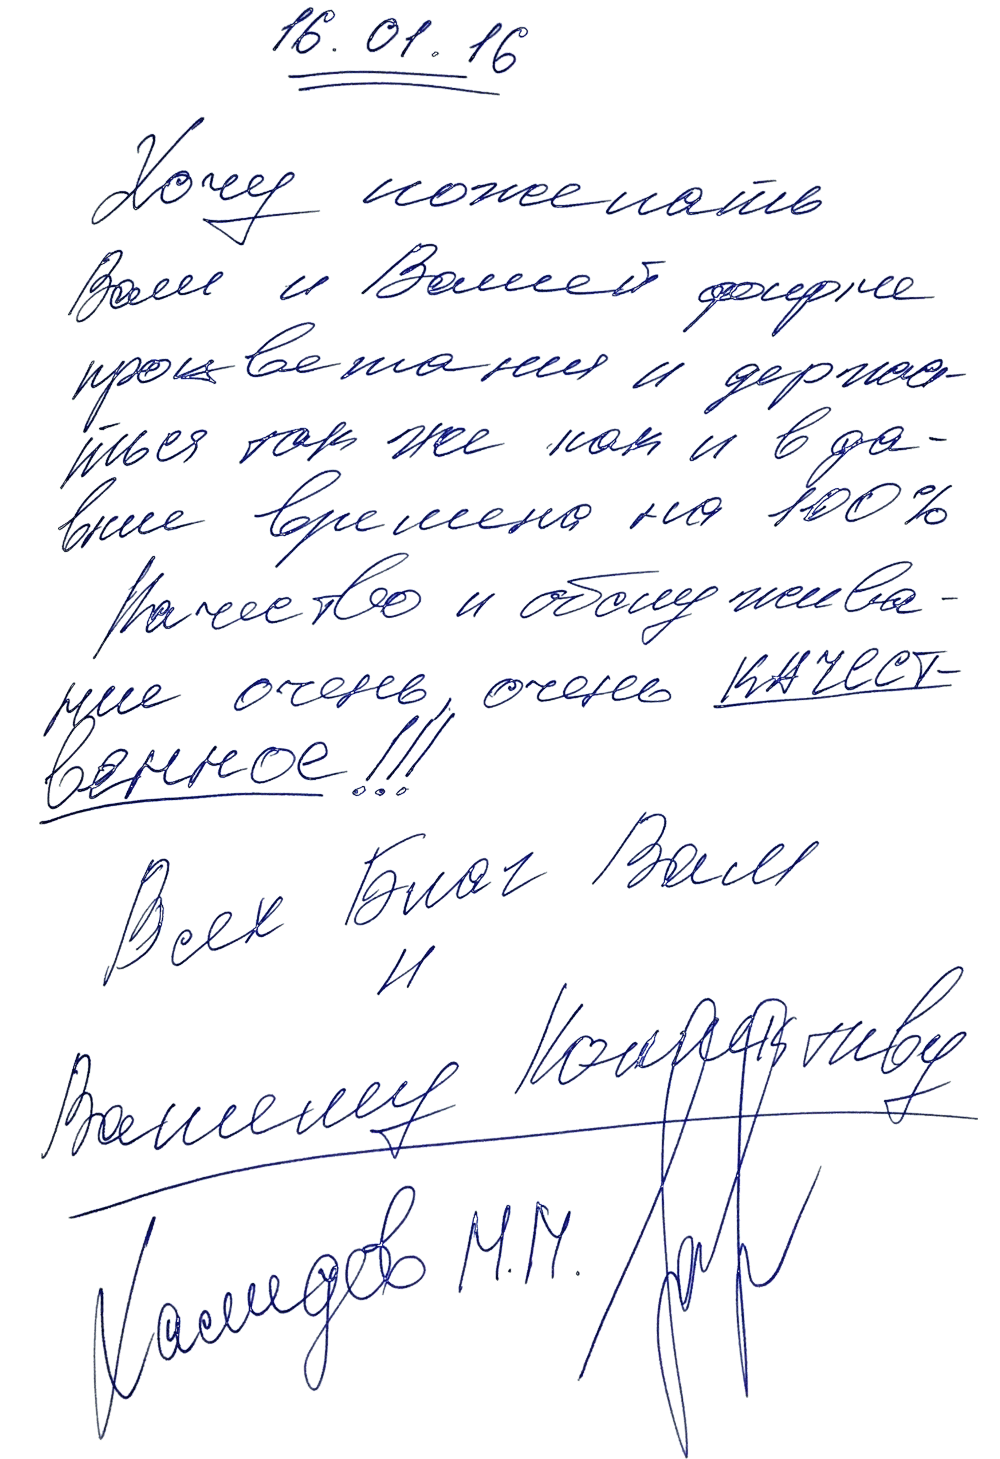 16.01.16
Хочу пожелать
Вам и Вашей фирме
процветания и держа-
ться так же как и в да-
вние времена на 100%
Качество и обслужива-
ние очень, очень КАЧЕСТ-
венное!!!
Всех Благ Вам
и
Вашему Коллективу
М.М.